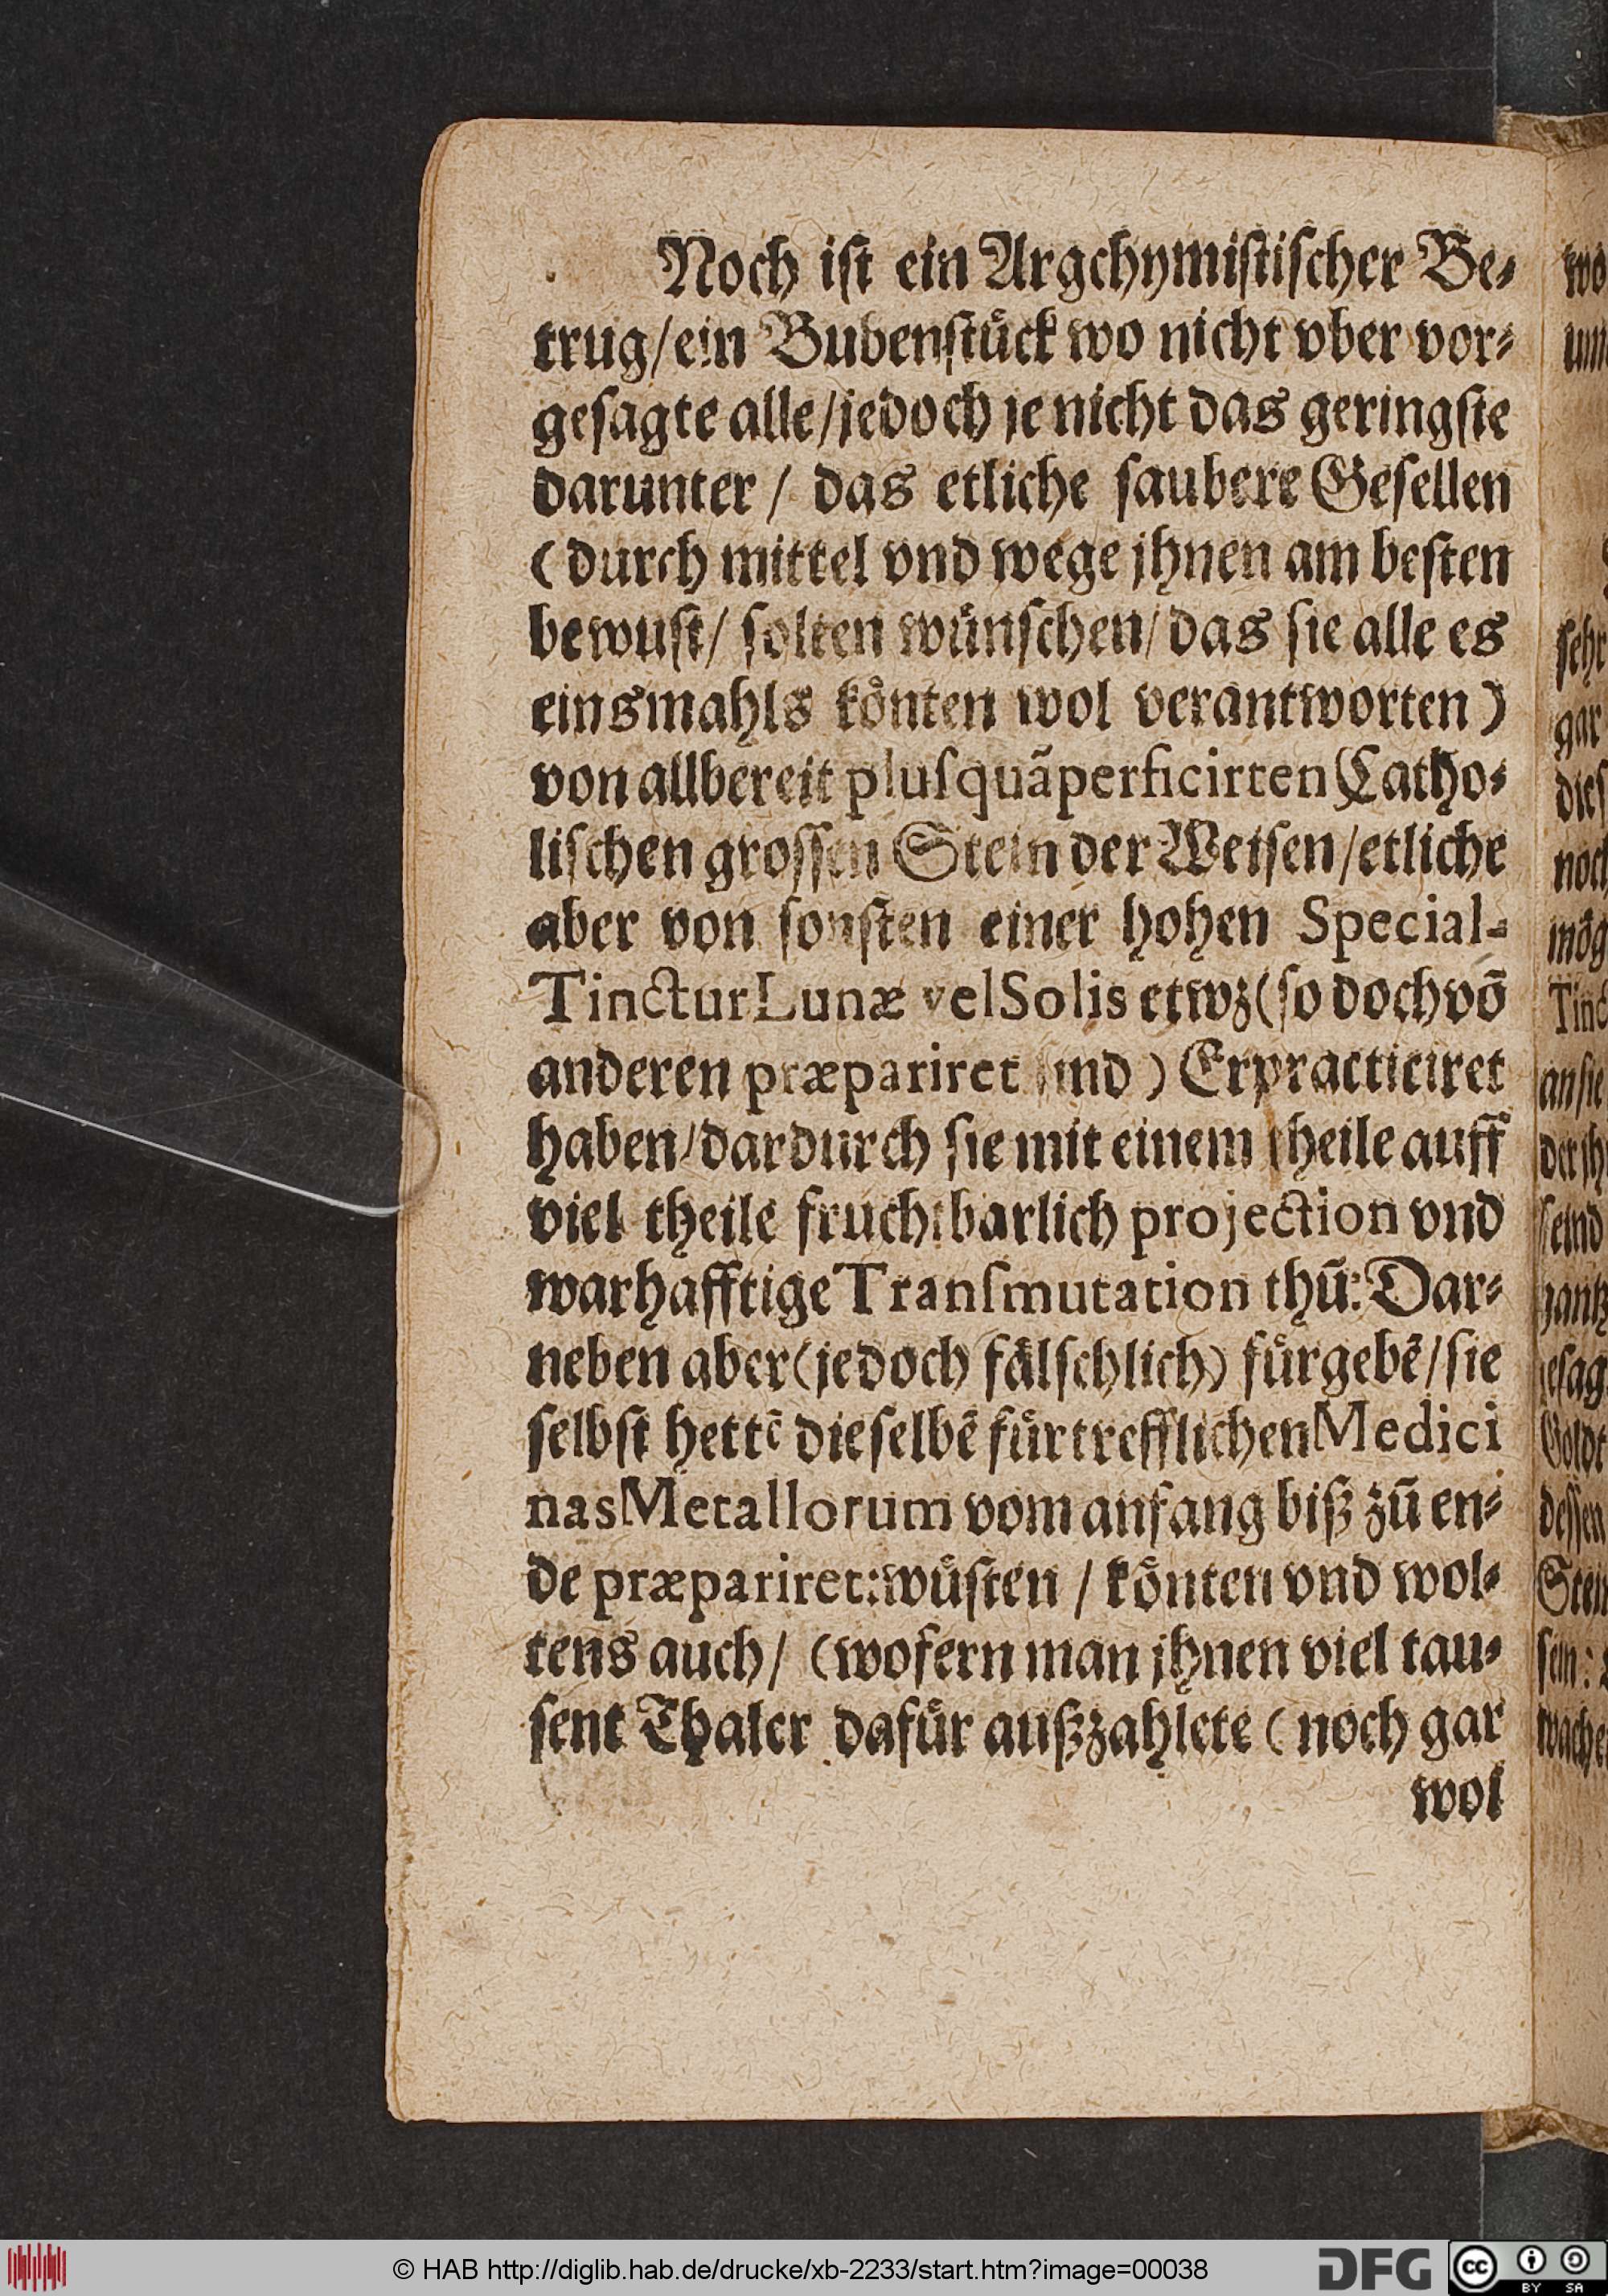 Noch iſt ein Argchymiſtiſcher Be⸗
trug/ein Bubenſtuͤck wo nicht vber vor⸗
geſagte alle/jedoch je nicht das geringſte
darunter / das etliche ſaubere Geſellen
(durch mittel vnd wege jhnen am beſten
bewuſt/ ſolten wuͤnſchen/das ſie alle es
einsmahls koͤnten wol verantworten)
von allbereit pluſquãperficirten Catho⸗
liſchen groſſen Stein der Weiſen/etliche
aber von ſonſten einer hohen Special-
Tinctur Lunæ vel Solis etwz(ſo doch võ
anderen præpariret ſind) Erpracticiret
haben/dardurch ſie mit einem theile auff
viel theile fruchtbarlich projection vnd
warhafftige Tranſmutation thũ: Dar⸗
neben aber(jedoch faͤlſchlich) fuͤrgebẽ/ſie
ſelbſt hettẽ dieſelbẽ fuͤrtrefflichen Medici
nas Metallorum vom anfang biß zũ en⸗
de præpariret: wuͤſten / koͤnten vnd wol⸗
tens auch/ (wofern man jhnen viel tau⸗
ſent Thaler dafuͤr außzahlete (noch gar
wol
wo
ſehr
gar
dieſ
noch
moͤg
Tinc
an ſie
der jh
ſeind
gantz
geſag
Goldt
deſſen
Stein
ſein:
© HAB http://diglib.hab.de/drucke/xb-2233/start.htm?image=00038
DFG
cc BY SA